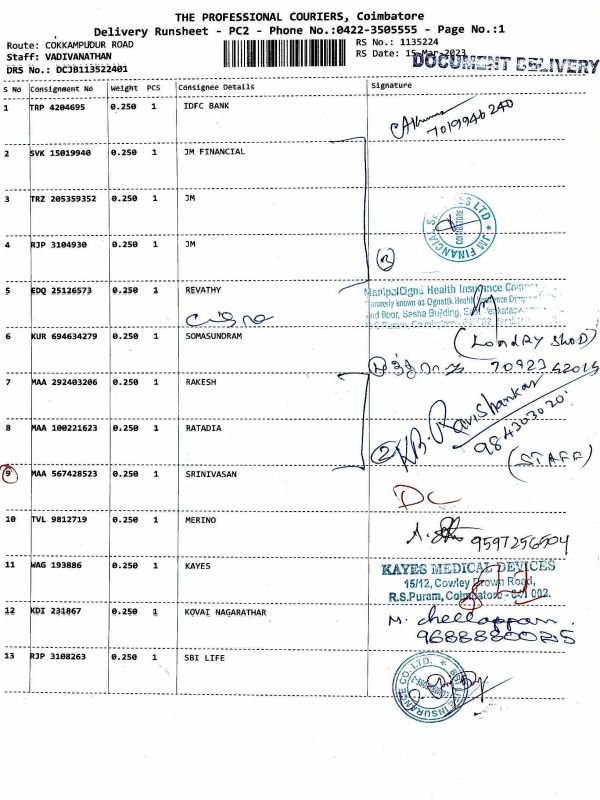 THE PROFESSIONAL COURIERS, Coimbatore
Delivery Runsheet - PC2 - Phone No.:0422-3505555 - Page No.:1
Route: COKKAMPUDUR ROAD
RS No.: 1135224
Staff: VADIVANATHAN
RS Date: 15-Mar-2023
DOCUMENT DELIVERY
DRS No.: DCJB113522401
S No Consignment No Weight PCS Consignee Details Signature
1 TRP 4204695 0.250 1 IDFC BANK
7019946240
2 SVK 15019940 0.250 1 JM FINANCIAL
3 TRZ 205359352 0.250 1 JM
JM FINANCIAL
COIMBATORE
LTD
4 RJP 3104930 0.250 1 JM
2
5 EDQ 25126573 0.250 1 REVATHY
ManipalCigna Health Insurance
6 KUR 694634279 0.250 1 SOMASUNDRAM
7 MAA 292403206 0.250 1 RAKESH
8 MAA 100221623 0.250 1 RATADIA
2
K.B. Ravishankar
(STAFF)
9 MAA 567428523 0.250 1 SRINIVASAN
DC
10 TVL 9812719 0.250 1 MERINO
9597256504
11 WAG 193886 0.250 1 KAYES
KAYES MEDICAL DEVICES
15/12, Cowley Brown Road,
R.S.Puram, Coimbatore - 641 002.
12 KDI 231867 0.250 1 KOVAI NAGARATHAR
M. chellappan
13 RJP 3108263 0.250 1 SBI LIFE
INSURANCE CO. LTD.